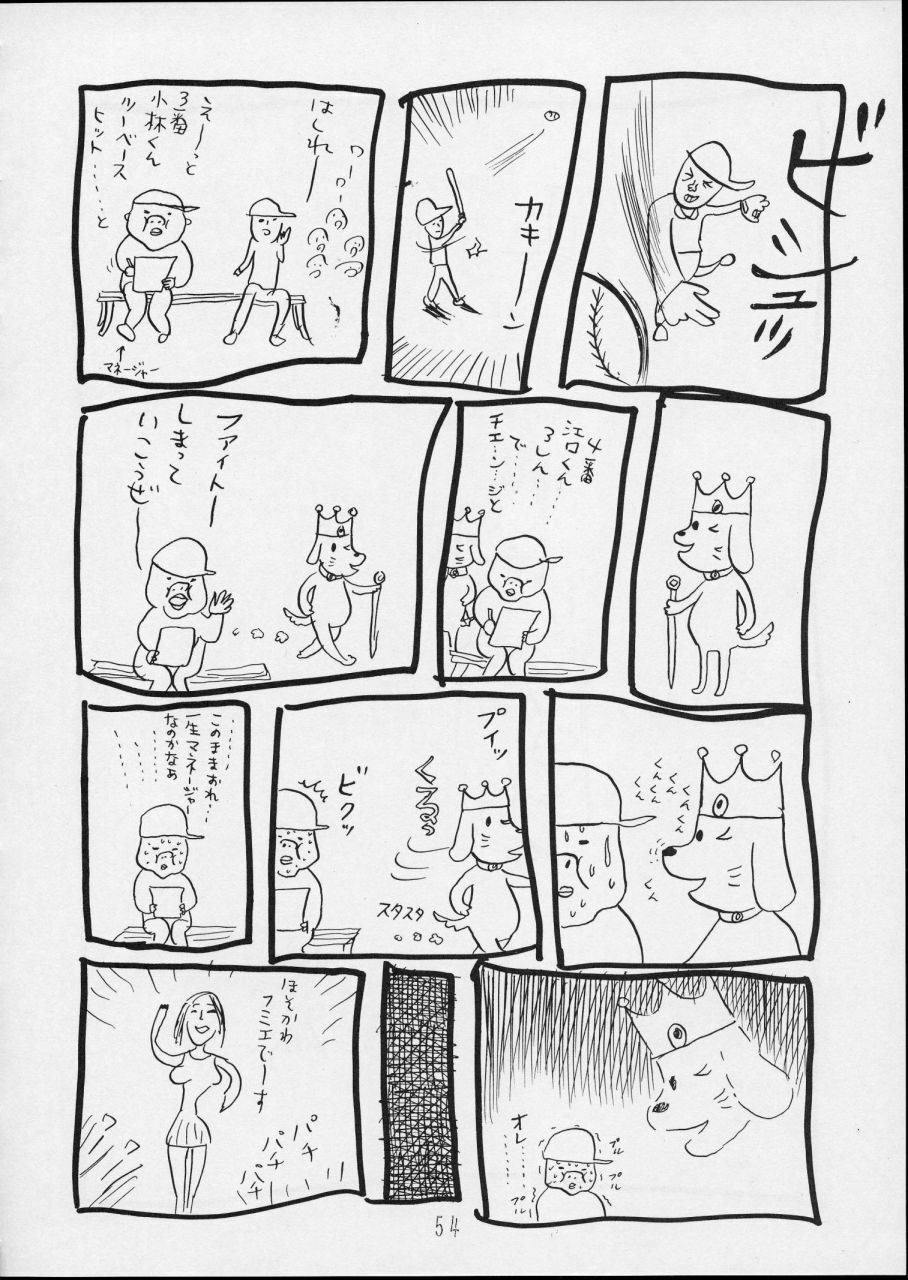 ビシュッ
カキーーン
ワーワー
はしれー
えーっと
3番
小林くん
ツーベース
ヒット……と
マネージャー
4番
江口くん…
3しん…
で……
チエ…ン…ジと
ファイトー
しまって
いこうぜー
くんくん
くんくん
くんくん
くん
プイッ
くるっ
ビクッ
スタスタ
……このままおれ…
一生マネージャー
なのかなぁ
オレ……
プル
プル
プル
ほそかわ
フミエでーす
パチ
パチ
パチ
54